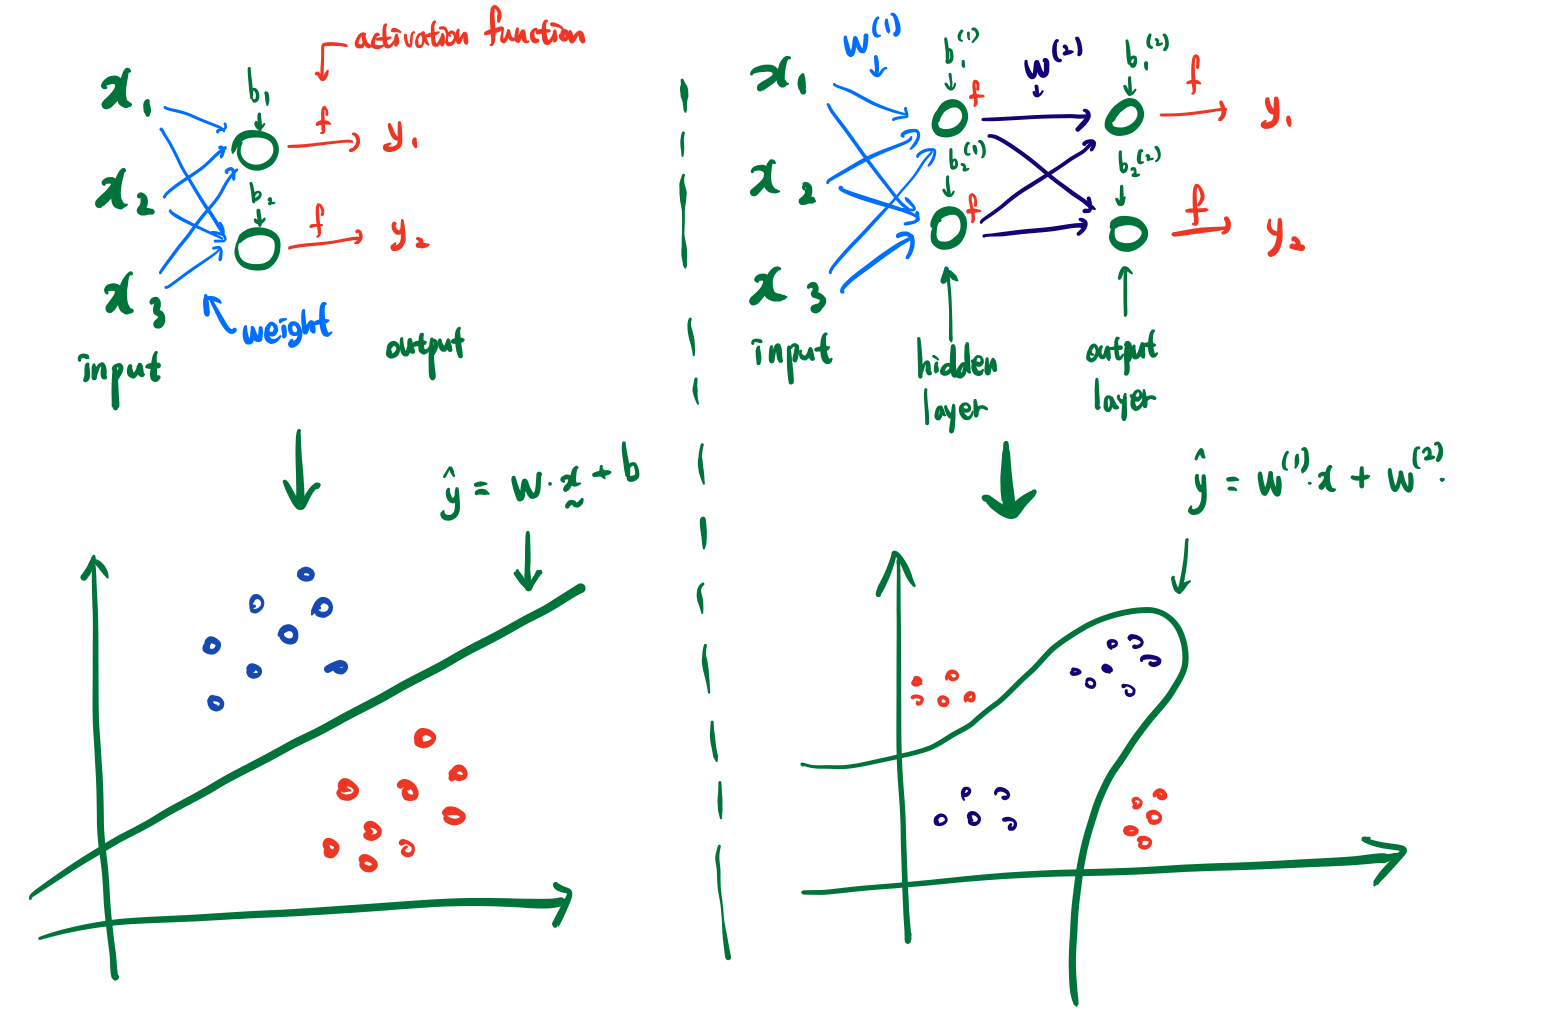 activation function
x₁ b₁ f y₁
x₂ b₂ f y₂
x₃
weight
input output
ŷ = w · x + b
w⁽¹⁾ b₁⁽¹⁾ w⁽²⁾ b₁⁽²⁾
x₁ f f y₁
x₂ b₂⁽¹⁾ b₂⁽²⁾
f f y₂
x₃
input hidden layer output layer
ŷ = w⁽¹⁾· x + w⁽²⁾·